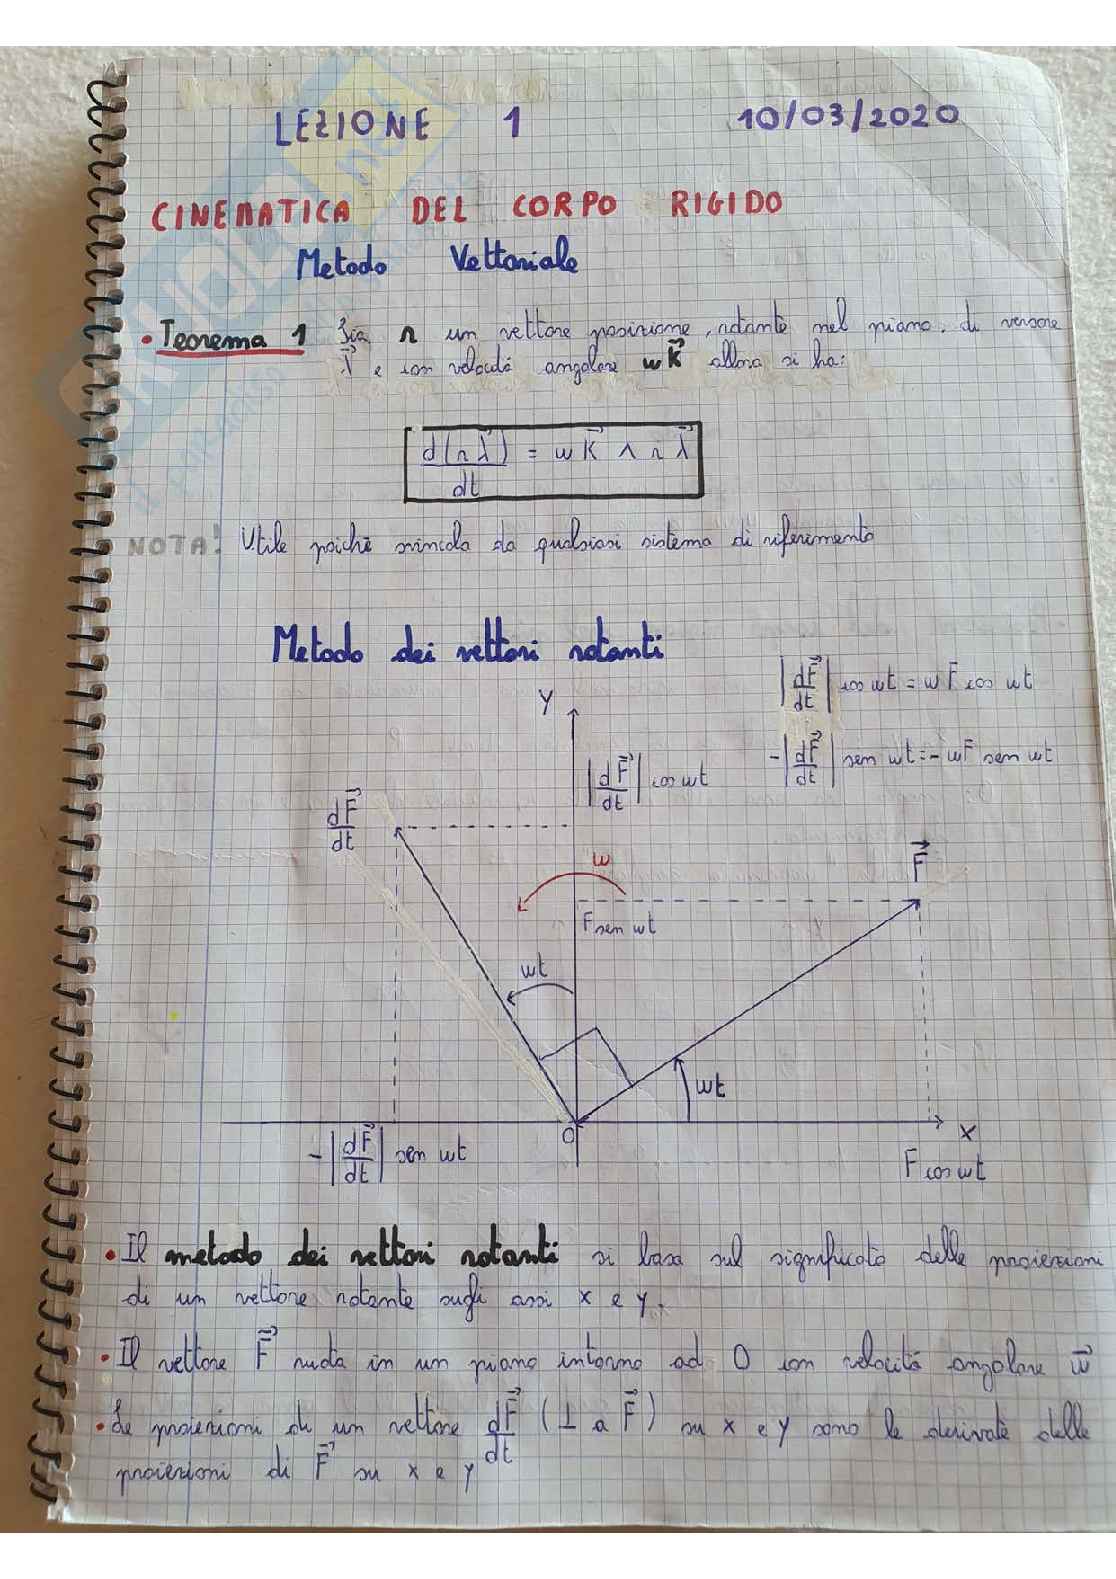 LEZIONE 1 10/03/2020
CINEMATICA DEL CORPO RIGIDO
Metodo Vettoriale
• Teorema 1 Sia r un vettore posizione, rotante nel piano, di versore
λ⃗ e con velocità angolare ωK⃗ allora si ha:
d(rλ⃗)/dt = ωK⃗ ∧ rλ⃗
NOTA! Utile poiché svincola da qualsiasi sistema di riferimento
Metodo dei vettori rotanti
|dF⃗/dt| cos ωt = ωF cos ωt
-|dF⃗/dt| sen ωt = -ωF sen ωt
Y
|dF⃗/dt| cos ωt
dF⃗/dt
ω
F⃗
F sen ωt
ωt
ωt
O
X
-|dF⃗/dt| sen ωt
F cos ωt
• Il metodo dei vettori rotanti si basa sul significato delle proiezioni
di un vettore rotante sugli assi x e y.
• Il vettore F⃗ ruota in un piano intorno ad O con velocità angolare ω⃗
• Le proiezioni di un vettore dF⃗/dt (⊥ a F⃗) su x e y sono le derivate delle
proiezioni di F⃗ su x e y